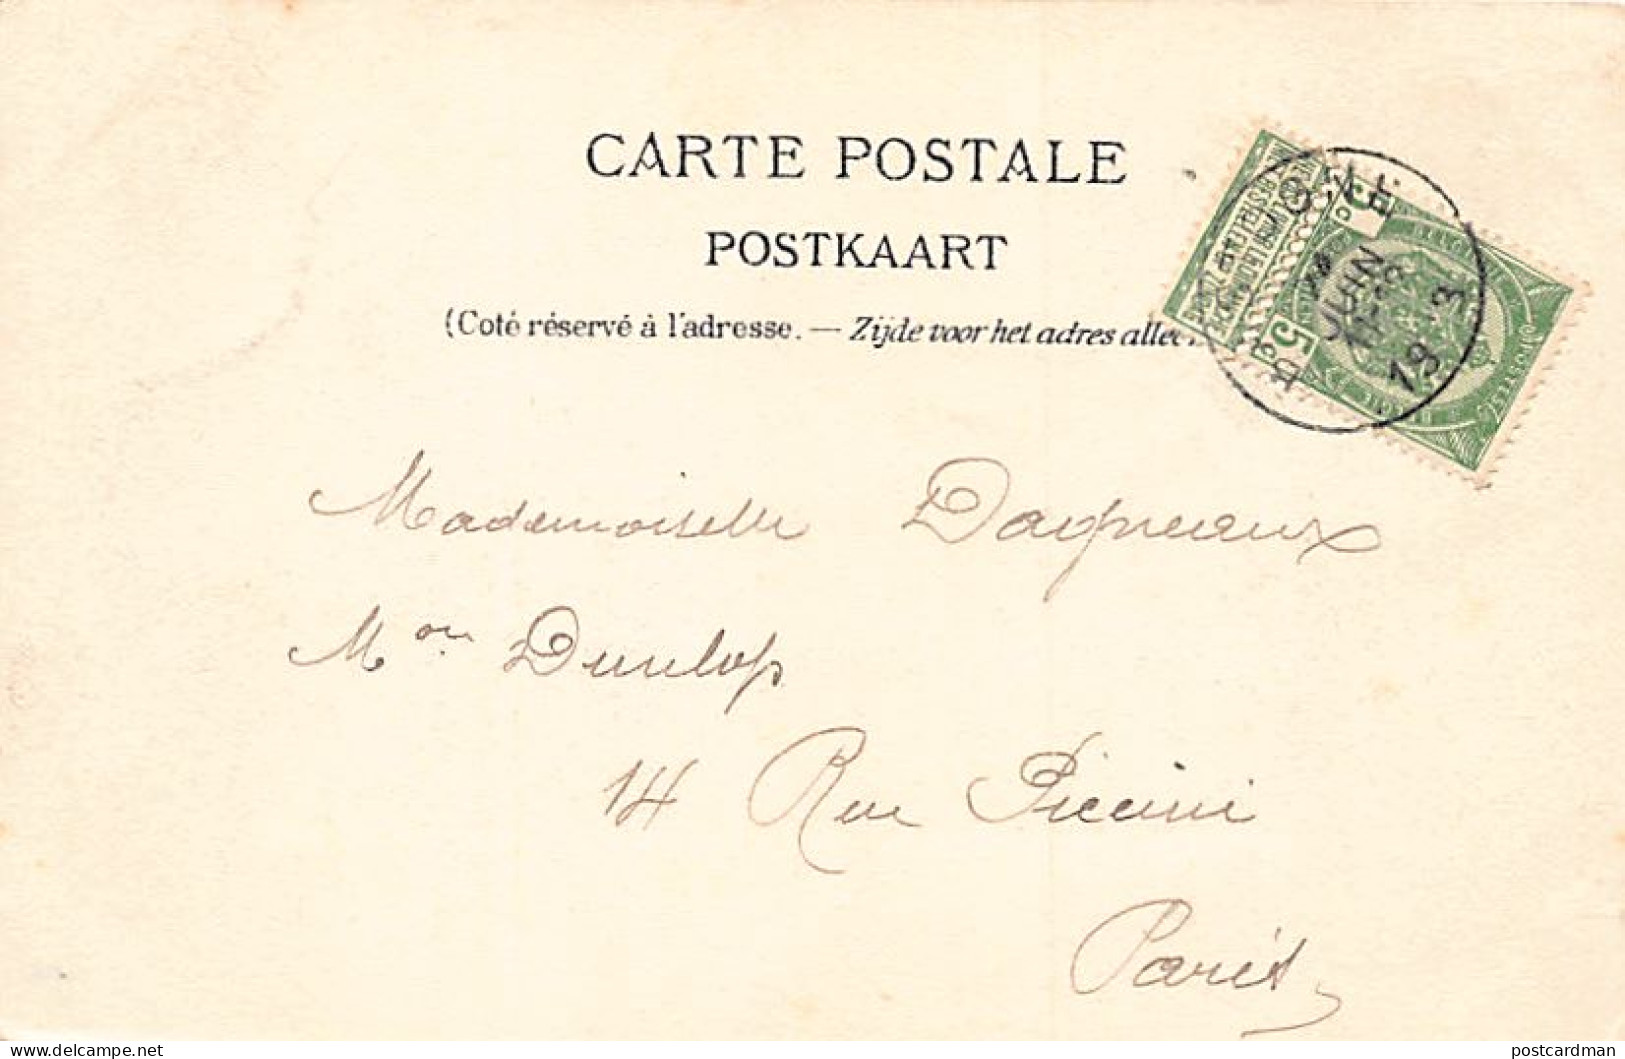 CARTE POSTALE
POSTKAART
(Coté réservé à l'adresse. — Zijde voor het adres allee
5c
5c
JUIN
Mademoiselle Dagneaux
Mon Dunlop
14 Rue Piccini
Paris
delcampe.net
postcardman